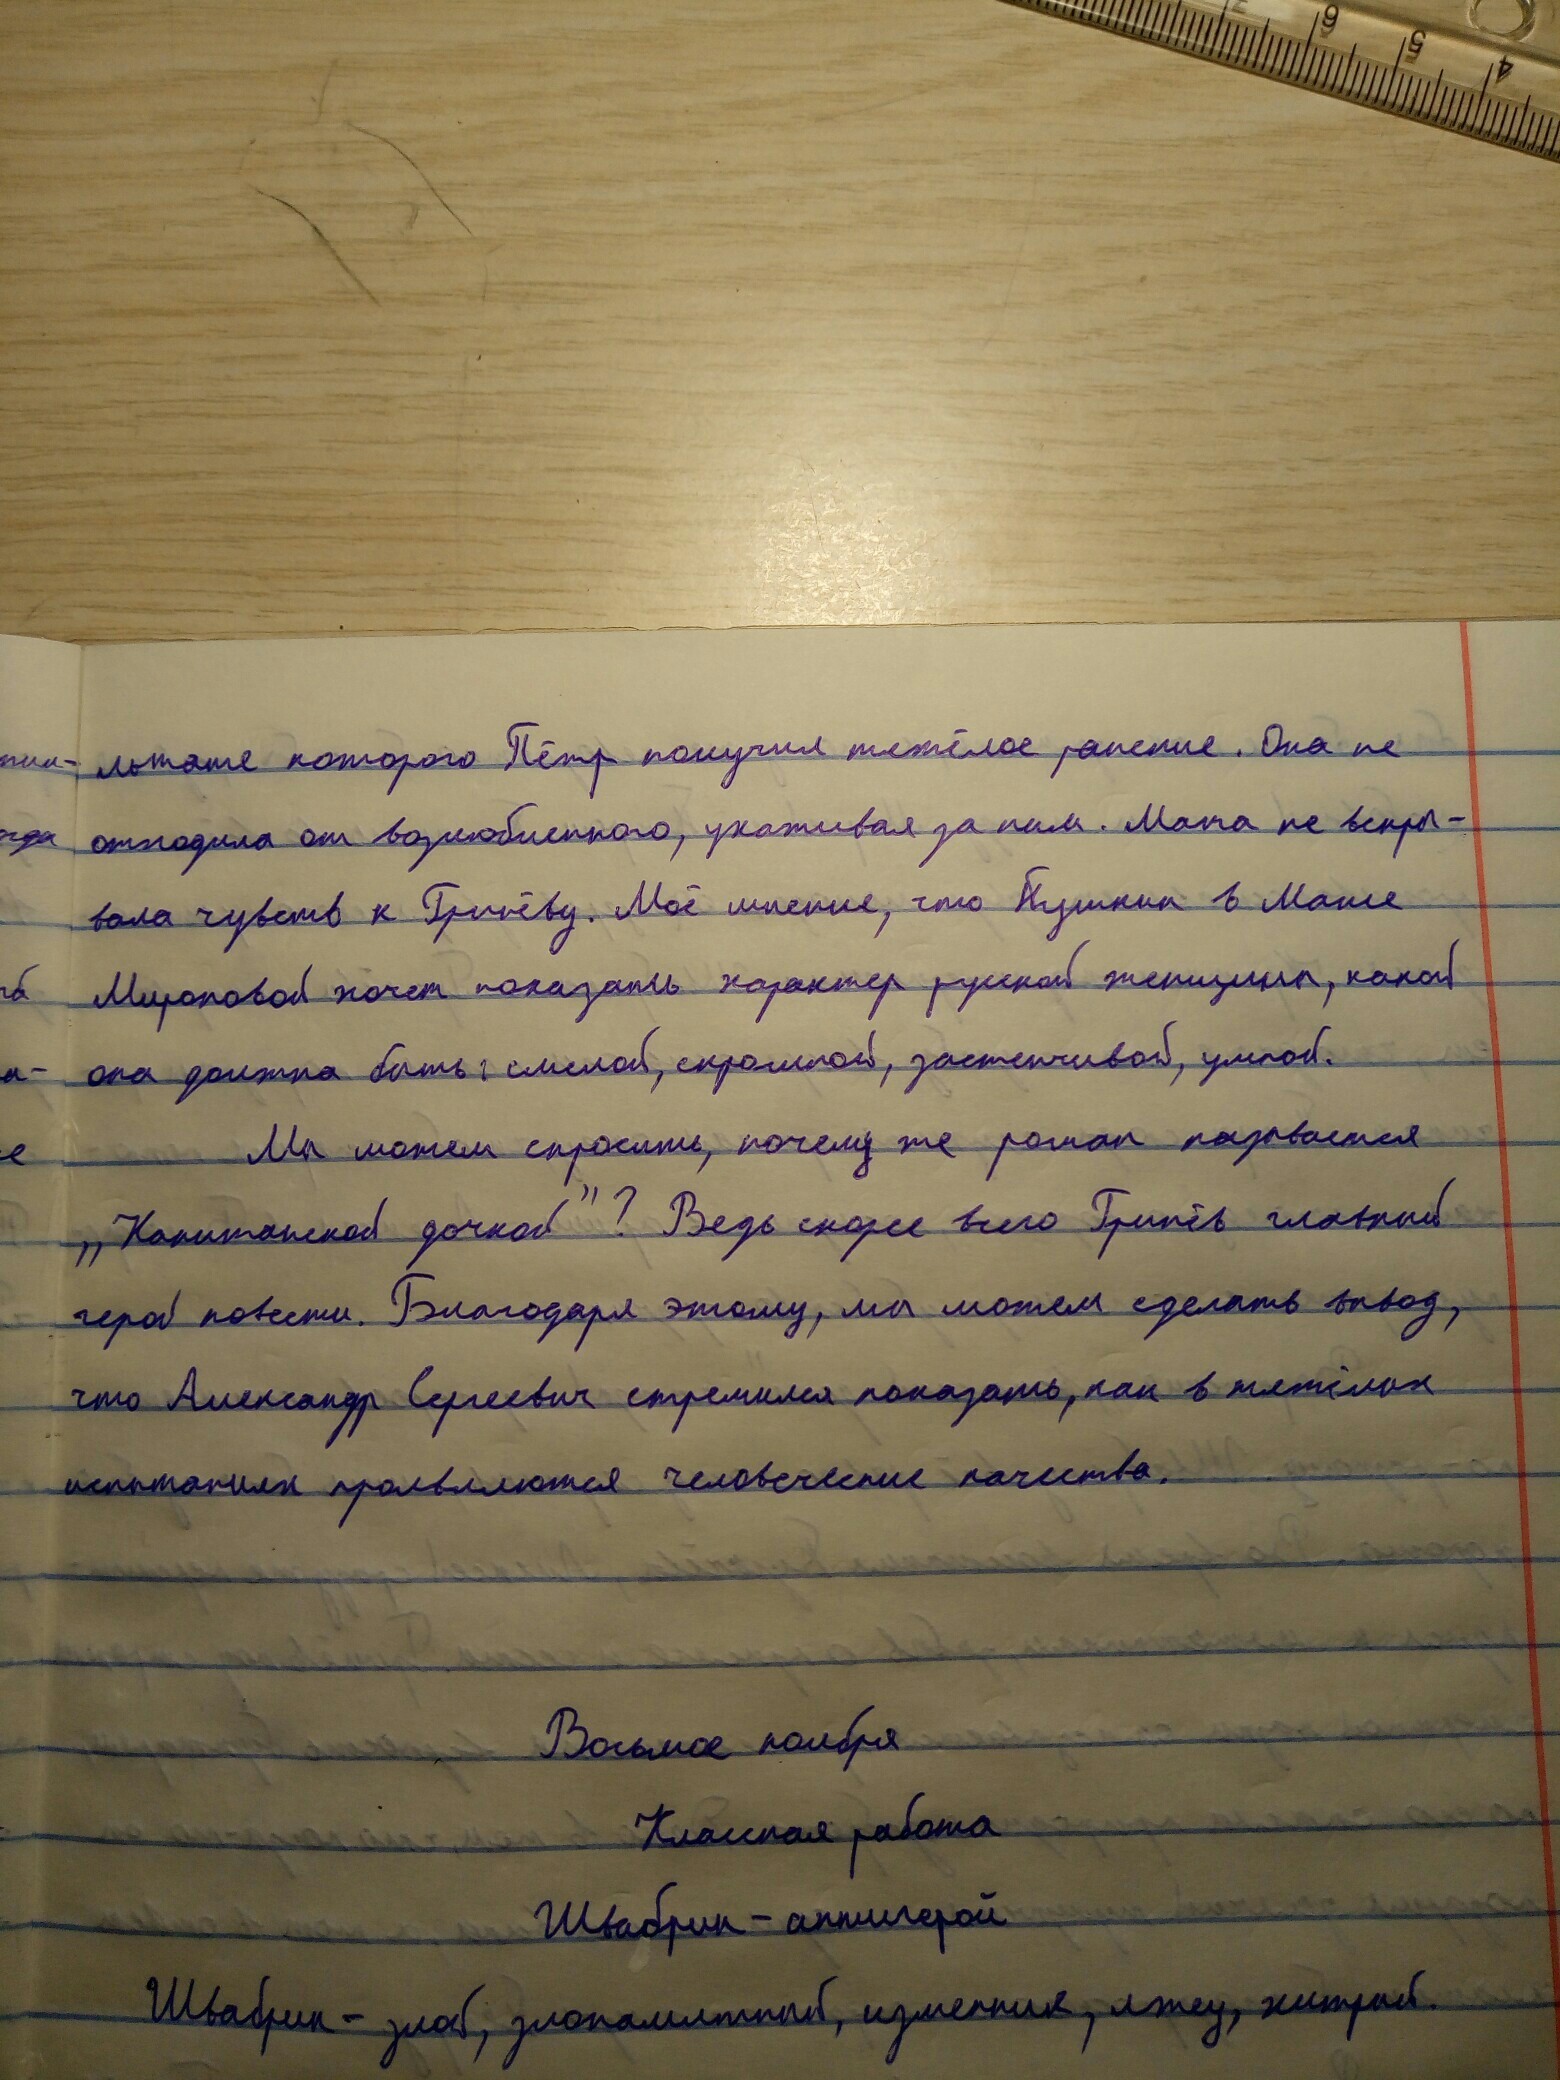 льтате которого Пётр получил тяжёлое ранение. Она не
отходила от возлюбленного, ухаживая за ним. Маша не вскры-
вала чувств к Гринёву. Моё мнение, что Пушкин в Маше
Мироновой хочет показать характер русской женщины, какой
она должна быть: смелой, скромной, застенчивой, умной.
Мы можем спросить, почему же роман называется
„Капитанской дочкой"? Ведь скорее всего Гринёв главный
герой повести. Благодаря этому, мы можем сделать вывод,
что Александр Сергеевич стремился показать, как в тяжёлых
испытаниях проявляются человеческие качества.
Восьмое ноября
Классная работа
Швабрин – антигерой
Швабрин – злой, злопамятный, изменник, лжец, хитрый.
6
5
4